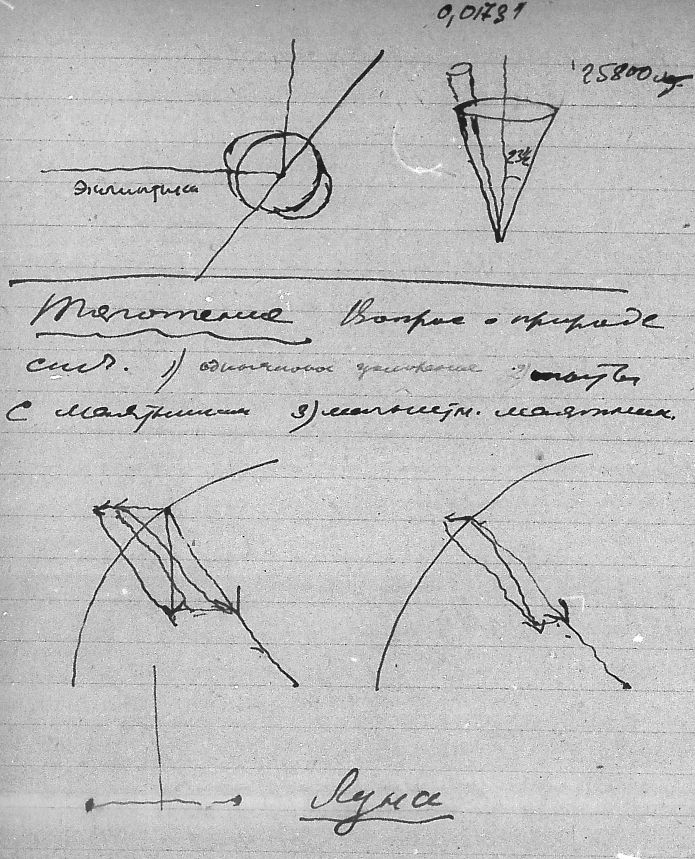 0,01731
25800 лѣт
23½
Эклиптика
Тяготение Вопрос о природе
сил. 1) одинаковое ускорение 2) опыты
с маятником 3) магнитн. маятник.
Луна